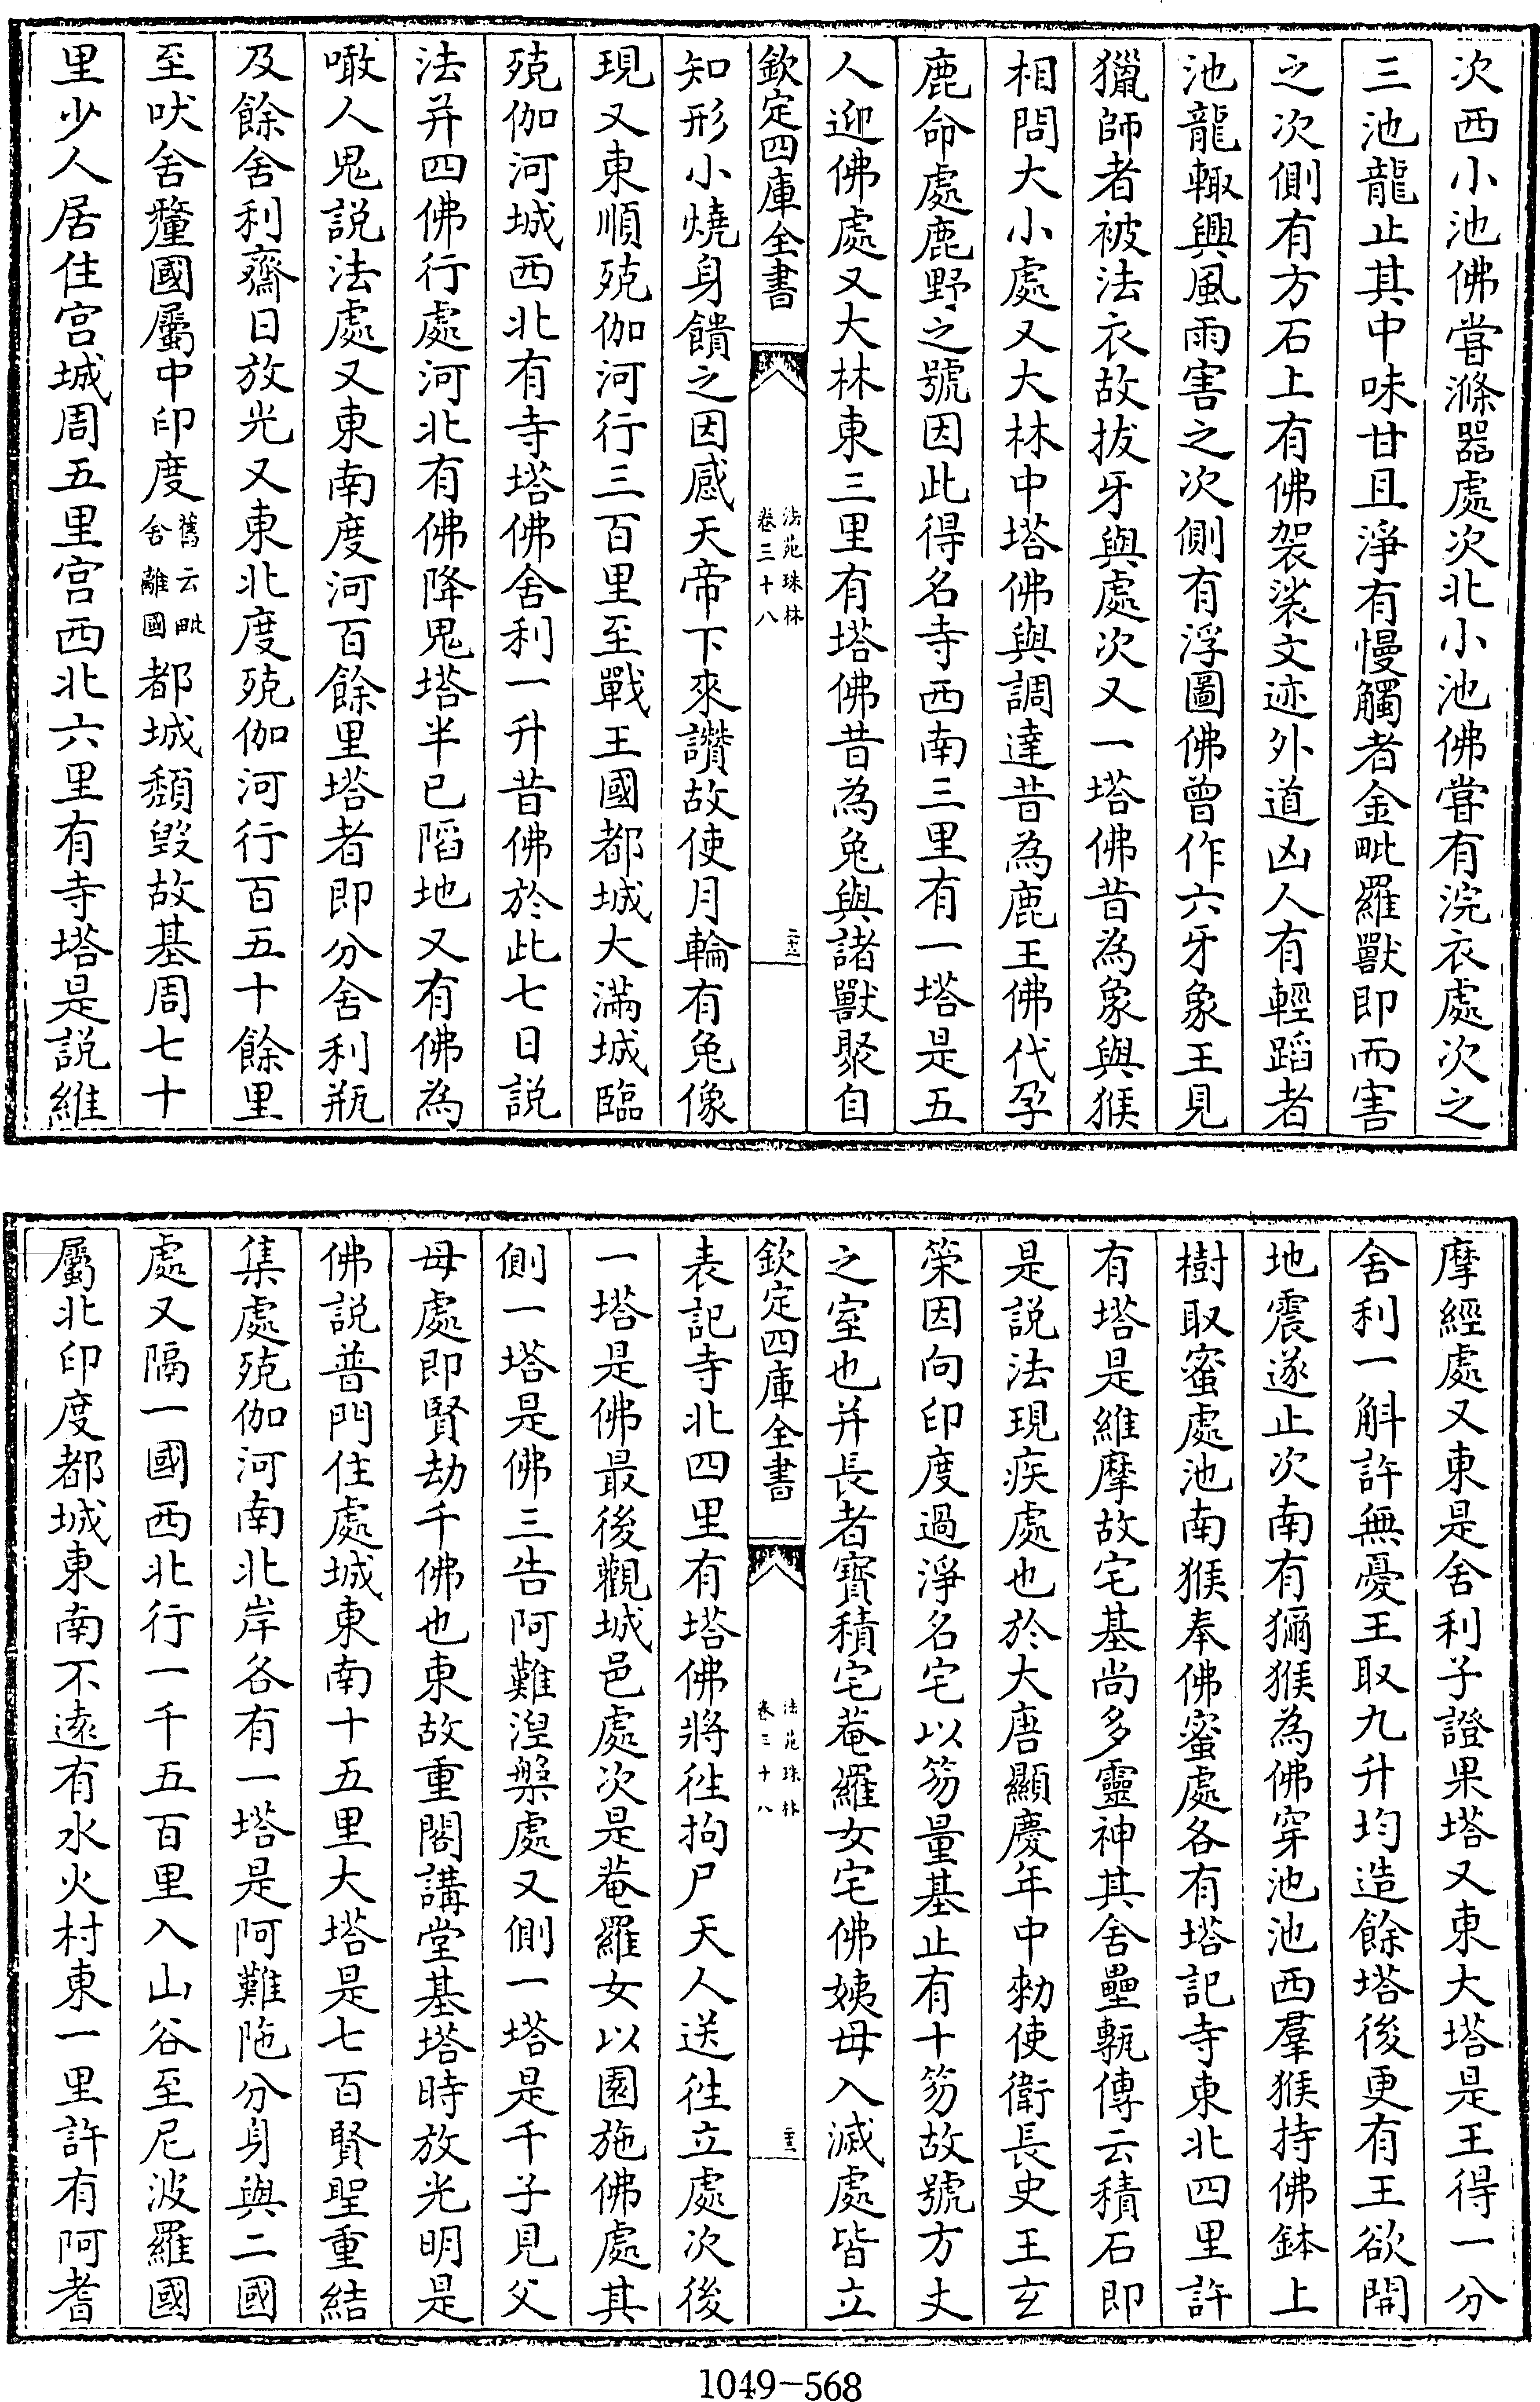 次西小池佛嘗滌器處次北小池佛嘗有浣衣處次之
三池龍止其中味甘且淨有慢觸者金毗羅獸即而害
之次側有方石上有佛袈裟文迹外道凶人有輕蹈者
池龍輙興風雨害之次側有浮圖佛曾作六牙象王見
獵師者被法衣故拔牙與處次又一塔佛昔為象與猴
相問大小處又大林中塔佛與調達昔為鹿王佛代孕
鹿命處鹿野之號因此得名寺西南三里有一塔是五
人迎佛處又大林東三里有塔佛昔為兔與諸獸聚自
欽定四庫全書
法苑珠林
卷三十八
知形小燒身饋之因感天帝下來讚故使月輪有兔像
現又東順殑伽河行三百里至戰王國都城大滿城臨
殑伽河城西北有寺塔佛舍利一升昔佛於此七日説
法并四佛行處河北有佛降鬼塔半已䧟地又有佛為
噉人鬼説法處又東南度河百餘里塔者即分舍利瓶
及餘舍利齋日放光又東北度殑伽河行百五十餘里
至吠舍釐國屬中印度舊云毗舍離國都城頽毁故基周七十
里少人居住宫城周五里宫西北六里有寺塔是説維
摩經處又東是舍利子證果塔又東大塔是王得一分
舍利一斛許無憂王取九升均造餘塔後更有王欲開
地震遂止次南有獼猴為佛穿池池西羣猴持佛鉢上
樹取蜜處池南猴奉佛蜜處各有塔記寺東北四里許
有塔是維摩故宅基尚多靈神其舍壘甎傳云積石即
是説法現疾處也於大唐顯慶年中勑使衛長史王玄
策因向印度過淨名宅以笏量基止有十笏故號方丈
之室也并長者寶積宅菴羅女宅佛姨母入滅處皆立
欽定四庫全書
法苑珠林
卷三十八
表記寺北四里有塔佛將往拘尸天人送往立處次後
一塔是佛最後觀城邑處次是菴羅女以園施佛處其
側一塔是佛三告阿難湼槃處又側一塔是千子見父
母處即賢劫千佛也東故重閣講堂基塔時放光明是
佛説普門住處城東南十五里大塔是七百賢聖重結
集處殑伽河南北岸各有一塔是阿難陁分身與二國
處又隔一國西北行一千五百里入山谷至尼波羅國
屬北印度都城東南不遠有水火村東一里許有阿耆
1049-568